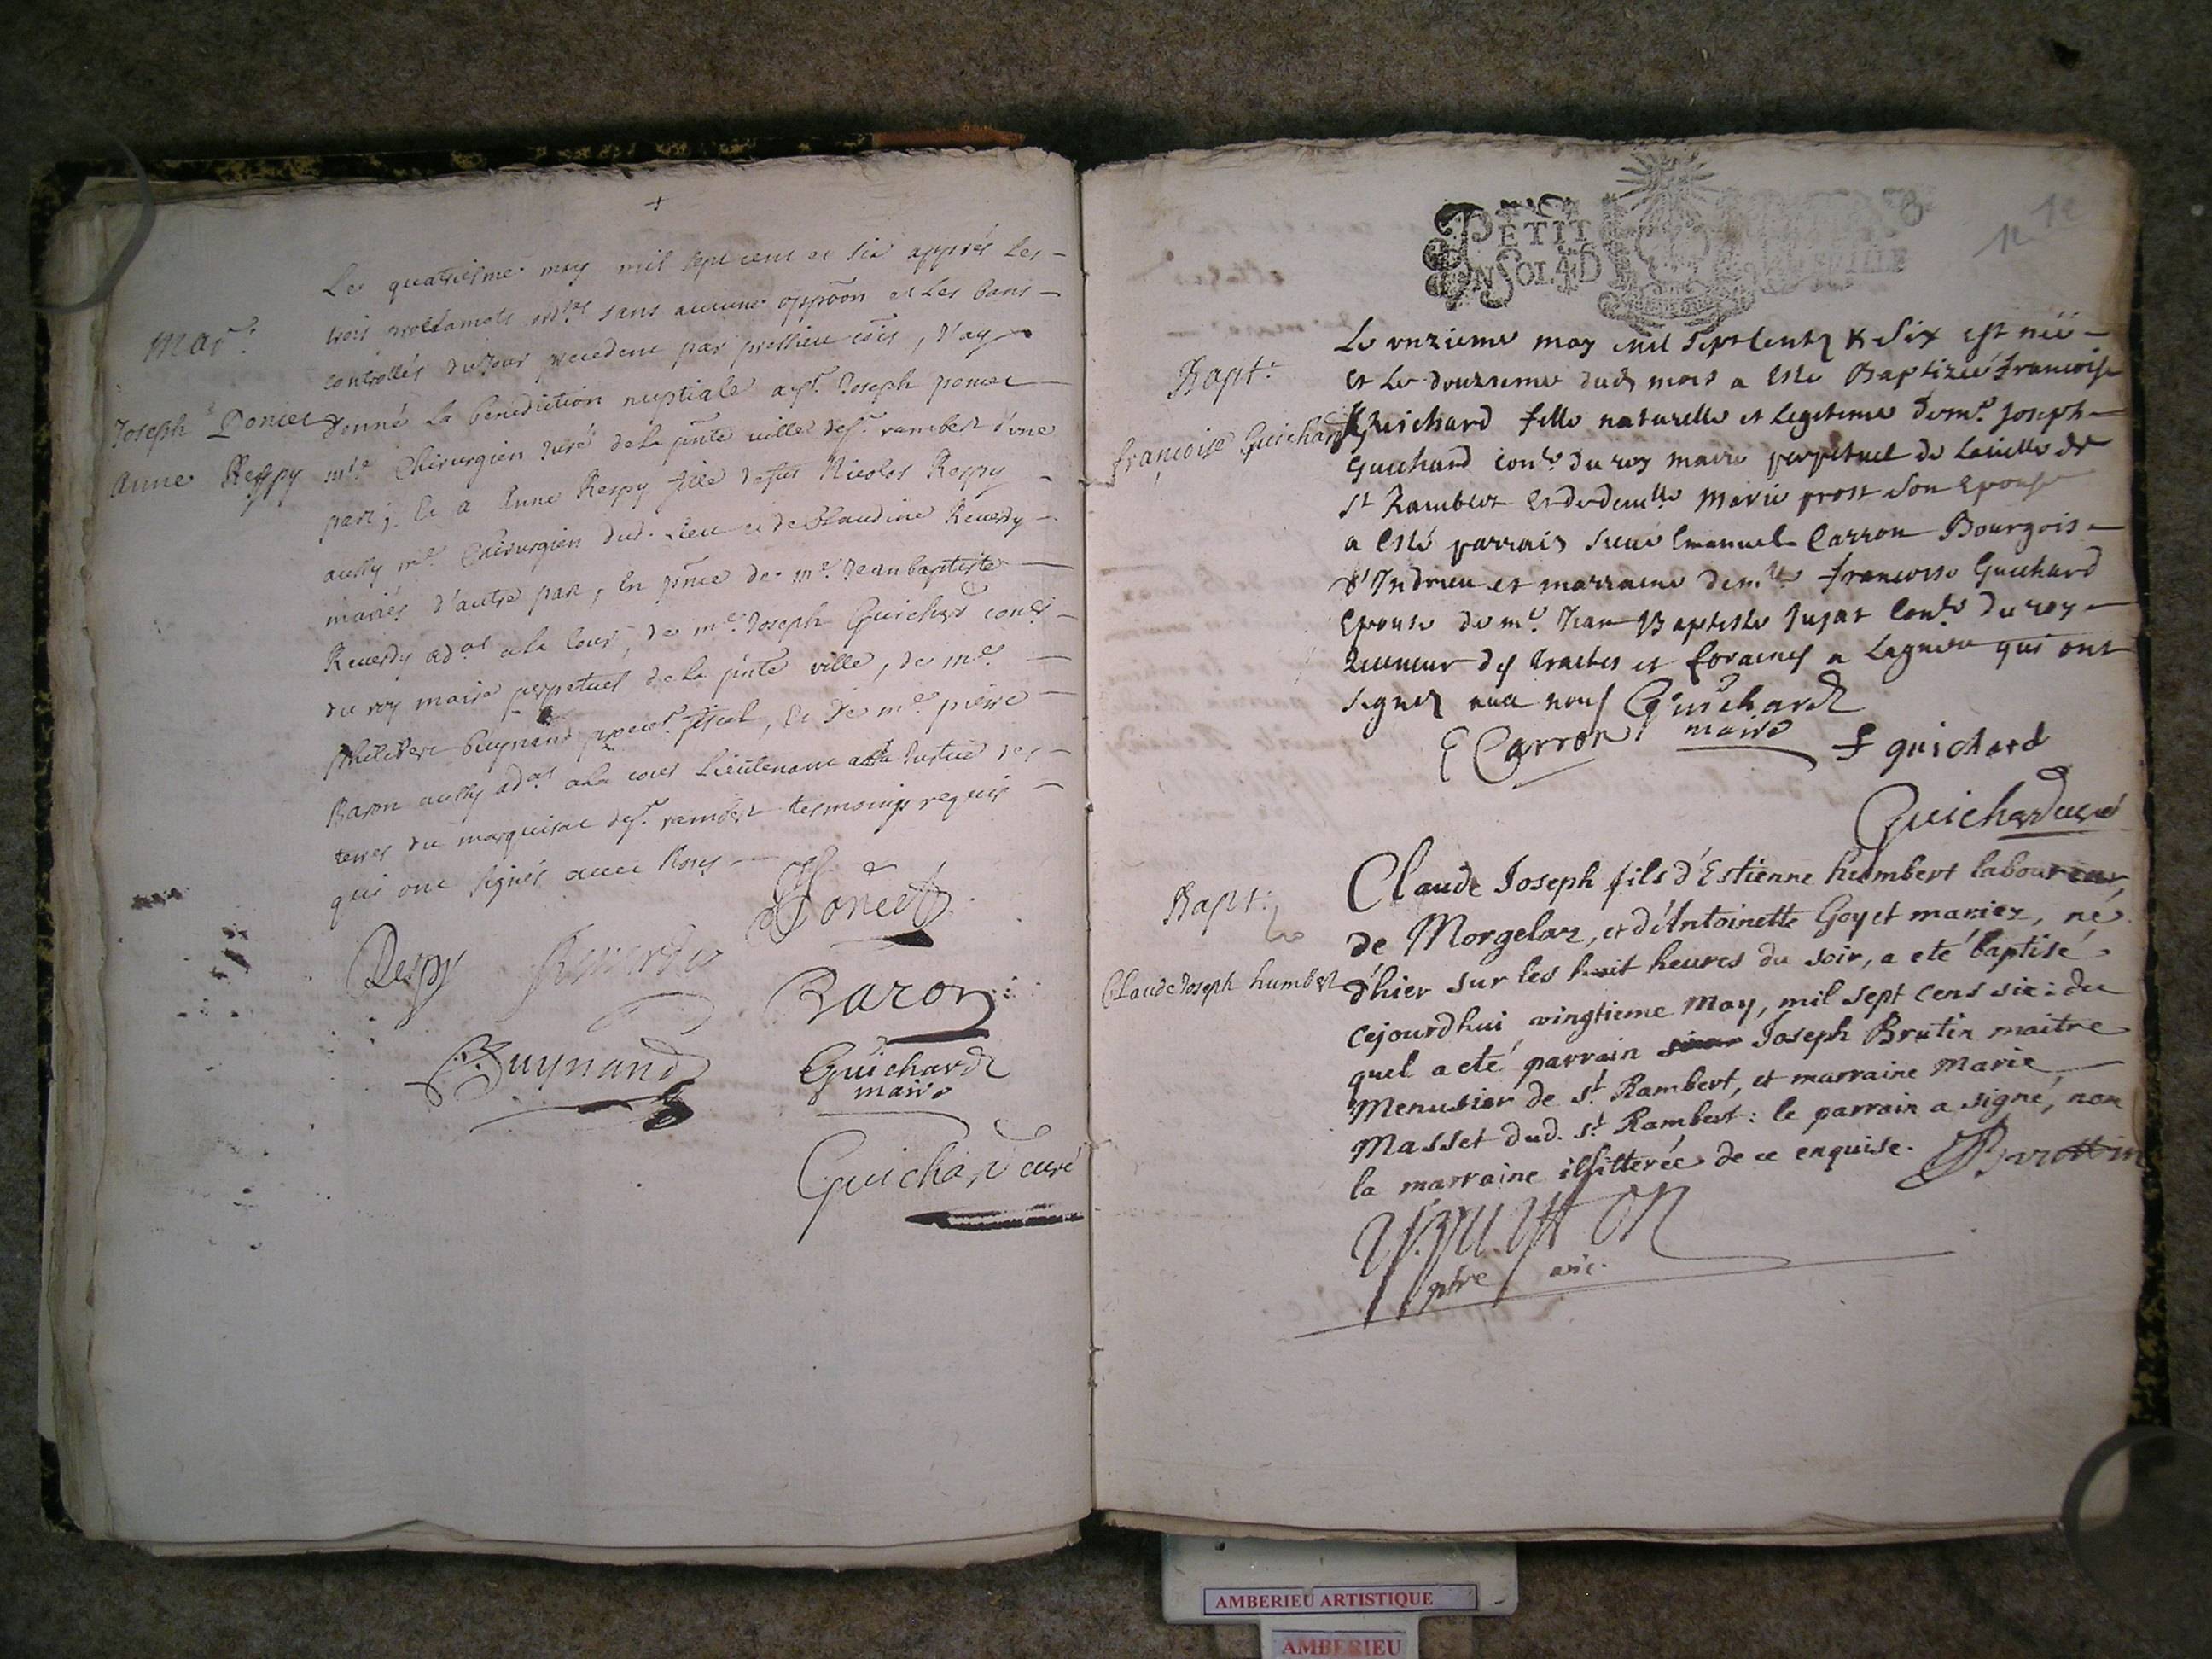 Le quatriesme may mil sept cent et six apprés les
trois proclamats ord.res sans aucune oppoôn et les bans
controllés du jour precedent par pressieu côis, J'ay
donné La benediction nuptiale a st. Joseph poncet
mre. Chirurgien juré de la pnte ville de st. rambert d'une
part; Et a Anne Respy fille de fut Nicolas Respy
aussy mre. Chirurgien dud. Lieu et de Claudine Reverdy
mariés d'autre part, En pnce de me. Jean baptiste
Reverdy ad.at a la cour, de me. Joseph Guichard con.er
du roy maire perpetuel de la pnte ville, de me.
philibert buynand procur. fiscal, Et de me. pierre
Baron aussy ad.at a la cour Lieutenant a la Justice des
terres du marquisat de st. rambert tesmoings requis
qui ont signés avec Nous
Mar.
Joseph Poncet &
Anne Respy
Poncet
Respy Reverdy
Baron
Buynand
Guichard
maire
Guichard curé
PETIT
IN SOL 4D
12 12
Bapt:
françoise Guichard
Le onzieme may mil sept centz & six est née
et le douzieme dud. mois a esté Baptizée francoise
Guichard fille naturelle et legitime de me. Joseph
Guichard con.er du roy maire perpetuel de la ville de
st Rambert et de dem.lle Marie prost son Epouse
a esté parrain sieur Emanuel Carron Bourgois
d'Indrieu et marraine dem.lle francoise Guichard
Epouse de me. Jean Baptiste Jujat con.er du roy
Receveur des traites et foraines a Lagnieu qui ont
signez avec nous Guichard
maire
E Carron f guichard
Guichard curé
Bapt:
Claude Joseph humbert
Claude Joseph fils d'Estienne humbert laboureur,
de Morgelaz, et d'Antoinette Goyet mariez, né
d'hier sur les huit heures du soir, a eté baptisé
cejourdhui vingtieme May, mil sept cens six: du
quel a eté parrain Joseph Brutin maitre
Menusier de st. Rambert, et marraine Marie
Masset dud. st. Rambert: le parrain a signé, non
la marraine illitterée de ce enquise. Brottin
ptre vic.
AMBERIEU ARTISTIQUE
AMBERIEU